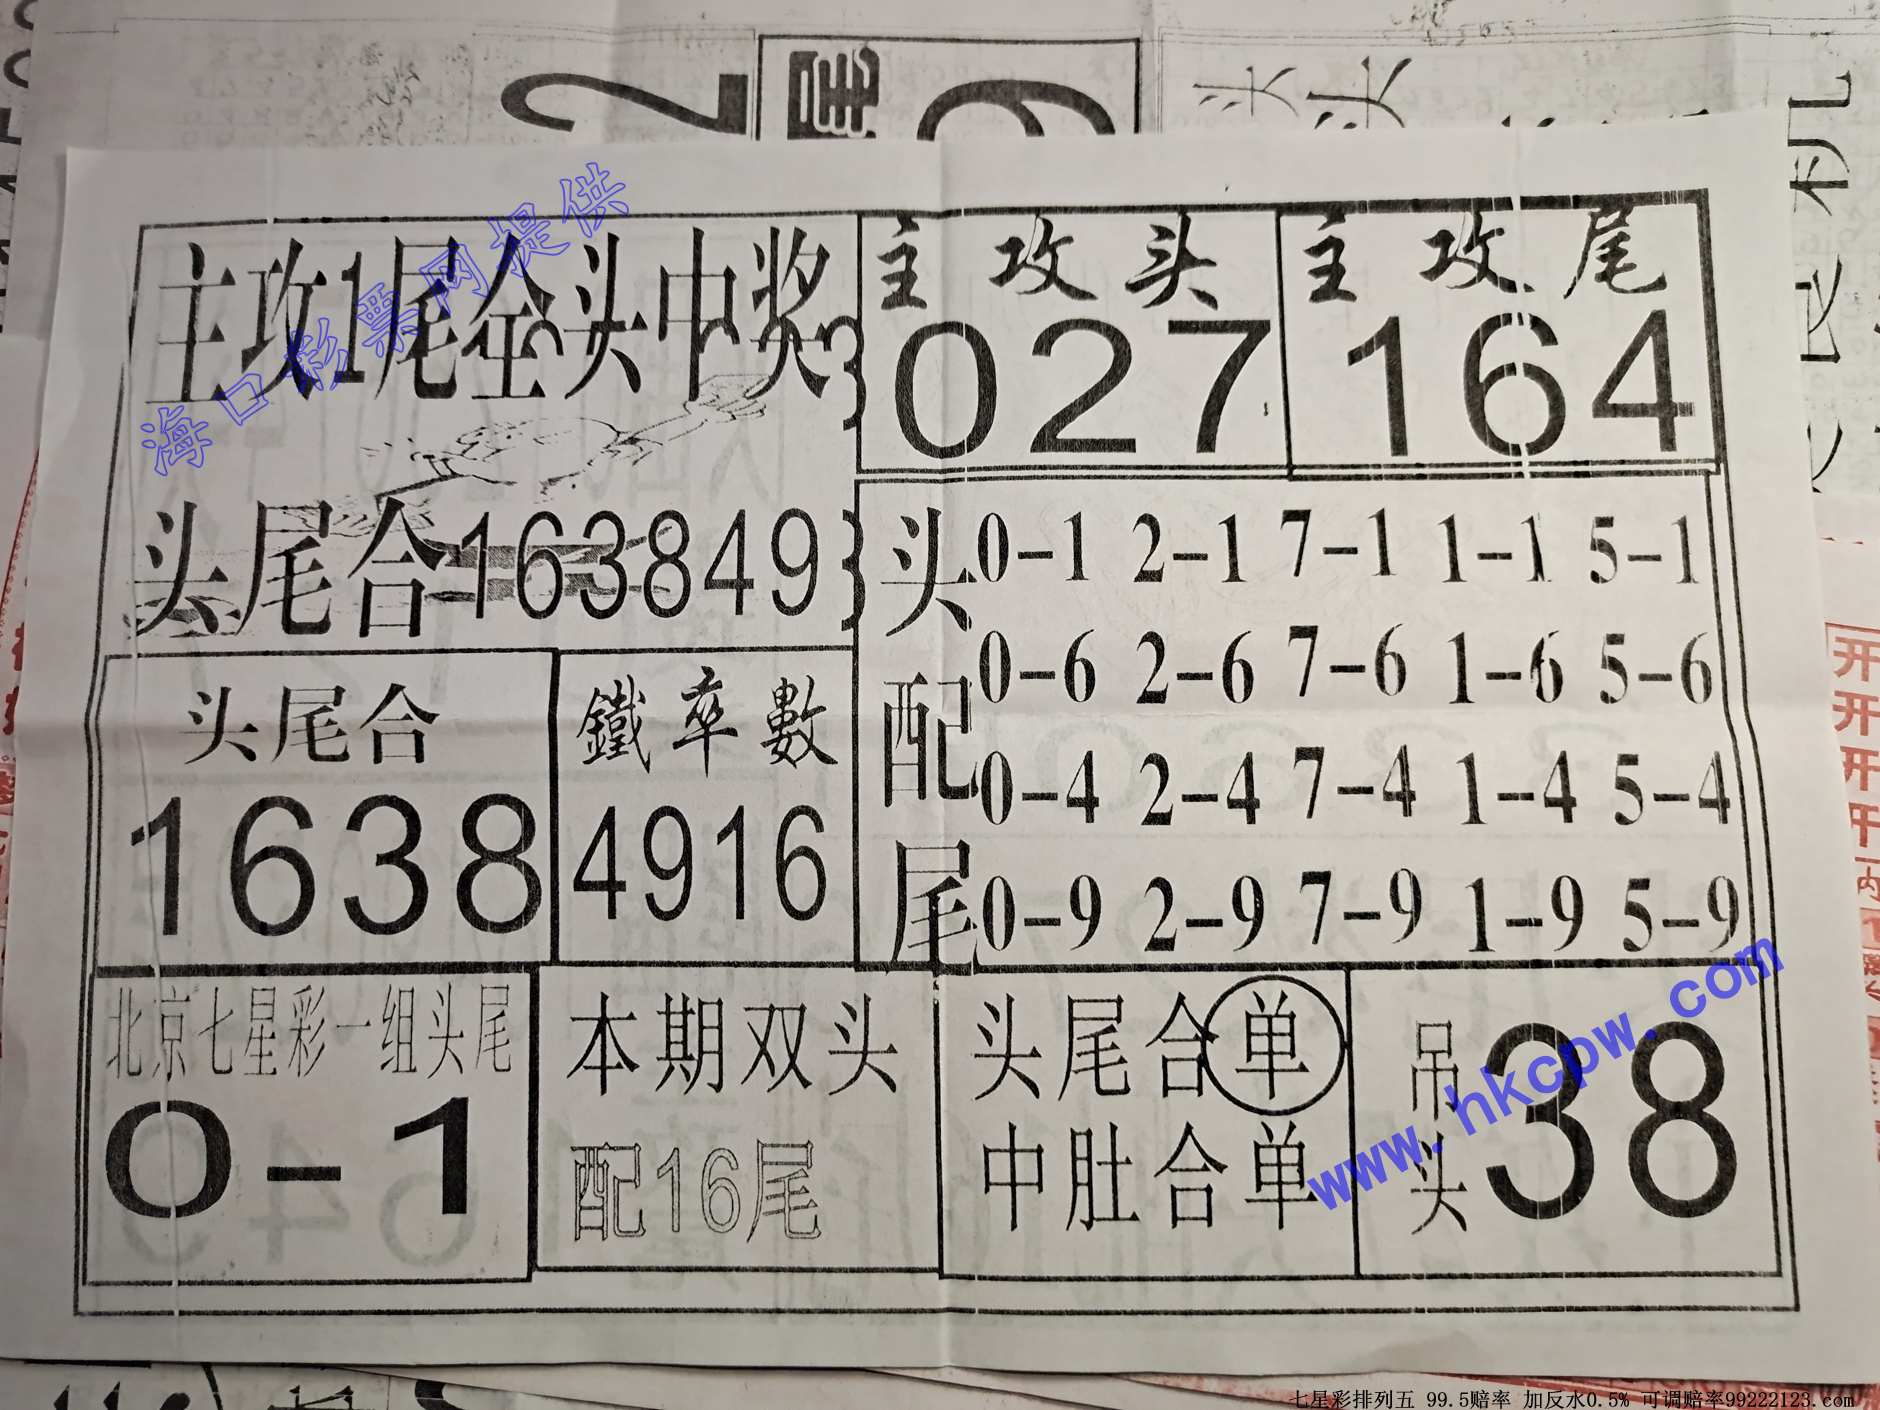 海口彩票网提供
主攻1尾全头中奖
主攻头
027
主攻尾
164
头尾合163849
头配尾
0-1 2-1 7-1 1-1 5-1
0-6 2-6 7-6 1-6 5-6
0-4 2-4 7-4 1-4 5-4
0-9 2-9 7-9 1-9 5-9
头尾合
1638
鐵率數
4916
北京七星彩一组头尾
0-1
本期双头
配16尾
头尾合单
中肚合单
吊头
38
www.hkcpw.com
七星彩排列五 99.5赔率 加反水0.5% 可调赔率99222123.com
2
9
头头
开
开
开
开